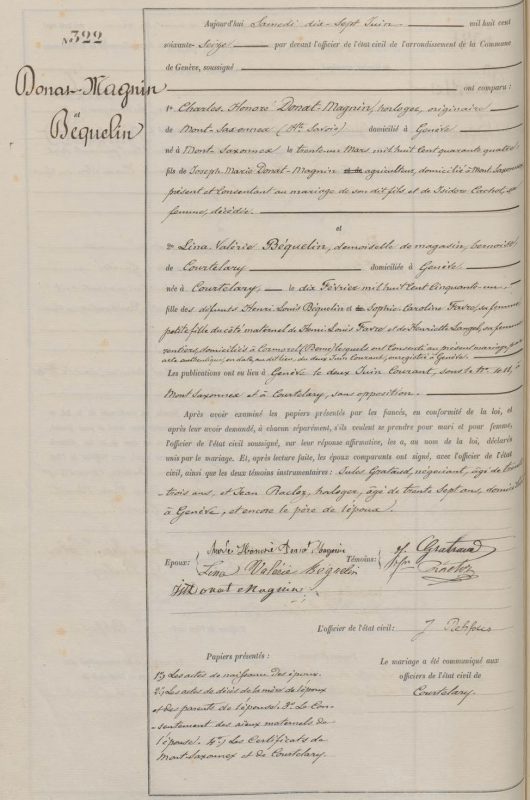 N° 322
Donat-Magnin
et
Béquelin
Aujourd'hui Samedi dix-Sept Juin mil huit cent
soixante-Seize par devant l'officier de l'état civil de l'arrondissement de la Commune
de Genève, soussigné
ont comparu :
1° Charles-Honoré Donat-Magnin, horloger, originaire
de Mont-Saxonnex (Hte Savoie) domicilié à Genève
né à Mont-Saxonnex le trente-un Mars mil huit Cent quarante quatre
fils de Joseph-Marie Donat-Magnin agriculteur, domicilié à Mont-Saxonnex
présent et Consentant au mariage de son dit fils et de Isidore Cachot, sa
femme, décédée.
et
2° Lina-Valérie Béquelin, demoiselle de magasin, bernoise
de Courtelary domiciliée à Genève
née à Courtelary, le dix Février mil huit Cent Cinquante-un.
fille des défunts Henri Louis Béquelin et Sophie-Caroline Favre, sa femme
petite fille du côté maternel de Henri-Louis Favre et de Henriette Langel, sa femme
rentiers, domiciliés à Cormoret (Berne) lesquels ont Consenti au présent mariage, par
acte authentique, en date, au dit lieu, du deux Juin Courant, enregistré à Genève.
Les publications ont eu lieu à Genève le deux Juin Courant, sous le N° 411, à
Mont Saxonnex et à Courtelary, sans opposition.
Après avoir examiné les papiers présentés par les fiancés, en conformité de la loi, et
après leur avoir demandé, à chacun séparément, s'ils veulent se prendre pour mari et pour femme,
l'officier de l'état civil soussigné, sur leur réponse affirmative, les a, au nom de la loi, déclarés
unis par le mariage. Et, après lecture faite, les époux comparants ont signé, avec l'officier de l'état
civil, ainsi que les deux témoins instrumentaires : Jules Grataud, négociant, âgé de trente
-trois ans, et Jean Raclez, horloger, âgé de trente Sept ans, domiciliés
à Genève, et encore le père de l'époux.
Epoux: Honoré Donat Magnin Témoins: Grataud
Lina Valérie Béguelin
Donat Magnin
L'officier de l'état civil: J
Papiers présentés :
1°) Les actes de naissance des époux.
2°) Les actes de décès de la mère de l'époux
et des parents de l'épouse. 3° Le Con-
-sentement des aïeux maternels de
l'épouse. 4°) Les Certificats de
Mont-Saxonnex et de Courtelary.
Le mariage a été communiqué aux
officiers de l'état civil de
Courtelary.